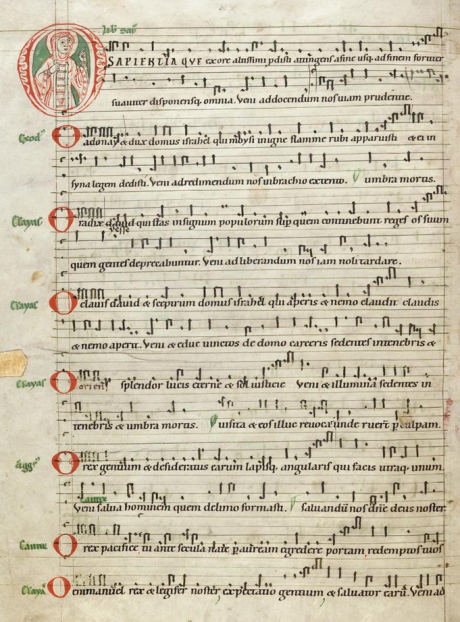 O SAPIENTIA QUE ex ore altissimi pdisti attingens a fine usq; ad finem fortiter
suauiter disponensq; omnia. Veni ad docendum nos uiam prudentie.
O adonay & dux domus israhel qui moysi in igne flamme rubi apparuisti & ei in
syna legem dedisti. Veni ad redimendum nos in brachio extento. V umbra mortis.
O radix dauid qui stas in signum populorum sup quem continebunt reges os suum
quem gentes deprecabuntur. Veni ad liberandum nos iam noli tardare.
O clauis dauid & sceptrum domus israhel qui aperis & nemo claudit claudis
& nemo aperit. Veni & educ uinctos de domo carceris sedentes in tenebris &
O oriens splendor lucis eterne & sol iusticie Veni & illumina sedentes in
tenebris & umbra mortis. V uisita & eos illuc reuoca unde ruert p culpam.
O rex gentium & desideratus earum lapisq; angularis qui facis utraq; unum.
Veni salua hominem quem de limo formasti. V saluandu nos dne deus noster
O rex pacifice tu ante secula nate p auream egredere portam redemptos tuos
O emmanuel rex & legifer noster expectatio gentium & saluator earu. Veni ad